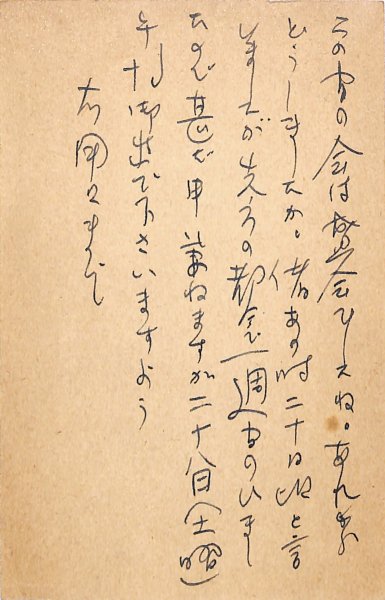 この間の会は盛会でしたね。あれから
どうしましたか。偖あの時二十日頃と言
ひましたが先方の都合で一週間のびまし
たので甚だ申し兼ねますが二十八日(土曜)
午后御出で下さいますよう
右用々まで